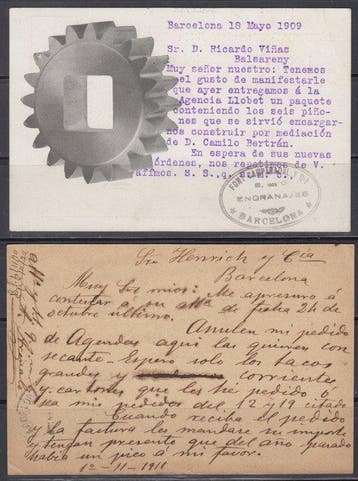 Barcelona 18 Mayo 1909
Sr. D. Ricardo Viñas
Balsareny
Muy señor nuestro: Tenemos
el gusto de manifestarle
que ayer entregamos á la
Agencia Llobet un paquete
conteniendo los seis piño-
nes que se sirvió encargar-
nos construir por mediación
de D. Camilo Bertrán.
En espera de sus nuevas
órdenes, nos repetimos de V.
afimos. S. S. q. s. m. b.,
FONT CAMPABADAL
ENGRANAJES
BARCELONA
Sres Henrich y Cia
Barcelona
Muy Srs mios: Me apresuro á
contestar á su atta de fecha 24 de
octubre último.
Anulen mi pedido
de Agendas aqui las quieren con
secante. Espero solo los tacos
grandes y corrientes
y cartones que les hié pedido ó
sea mis pedidos del 12 y 19 citado
Cuando reciba el pedido
y la factura les mandaré su importe
y tengan presente que del año pasado
había un pico á mi favor.
1º-11-1911